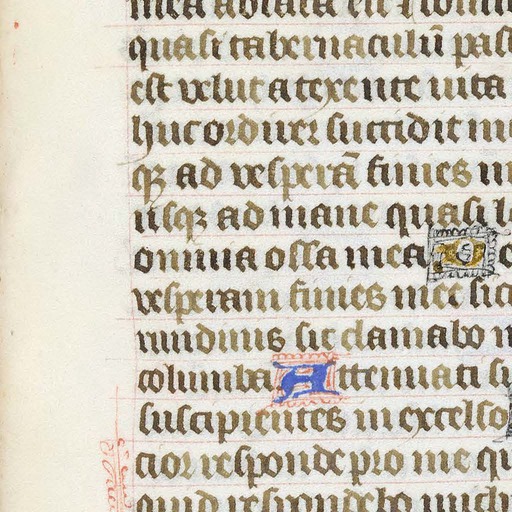 mea ablata est ⁊ conu
quasi tabernaculū past
est velut a texente uita
huc ordirer succidit m
qꝫ ad vesperā finies m
usqꝫ ad mane quasi l
omnia ossa mea D
vesperam finies mee sic
rundinis sic clamabo m
columba Attenuati s
suscipientes in excelso
cior responde pro me qu
quid respondebo mich